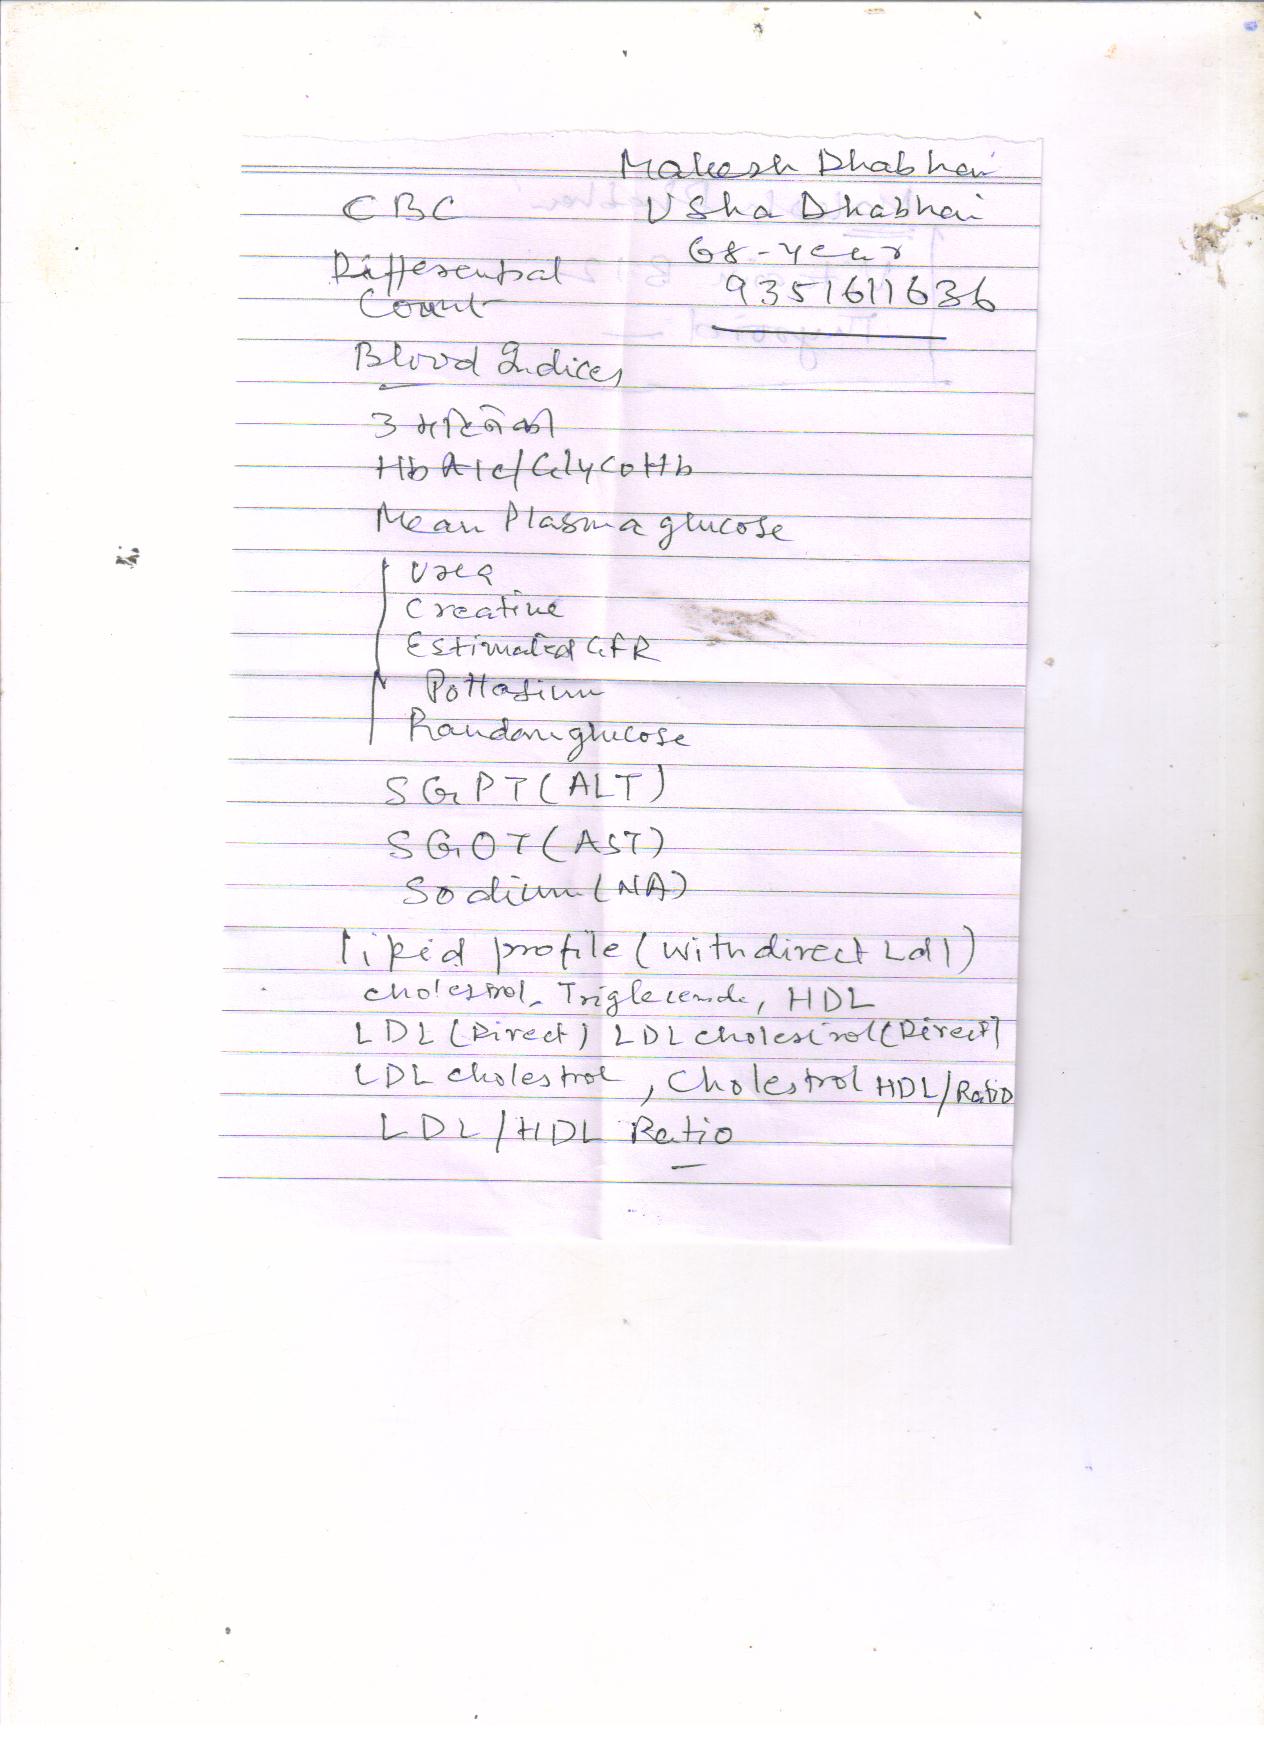 Makesh Dhabhai
CBC USha Dhabhai
68-year
Differential
Count
9351611636
Blood Indices
3 महिने की
Hb A1c/GlycoHb
Mean Plasma glucose
Urea
Creatine
Estimated GFR
Pottasium
Random glucose
SGPT(ALT)
SGOT(AST)
Sodium(NA)
lipid profile (with direct Ldl)
cholestrol, Triglecende, HDL
LDL (Direct) LDL cholestrol(Direct)
LDL cholestrol, Cholestrol HDL/Ratio
LDL/HDL Ratio